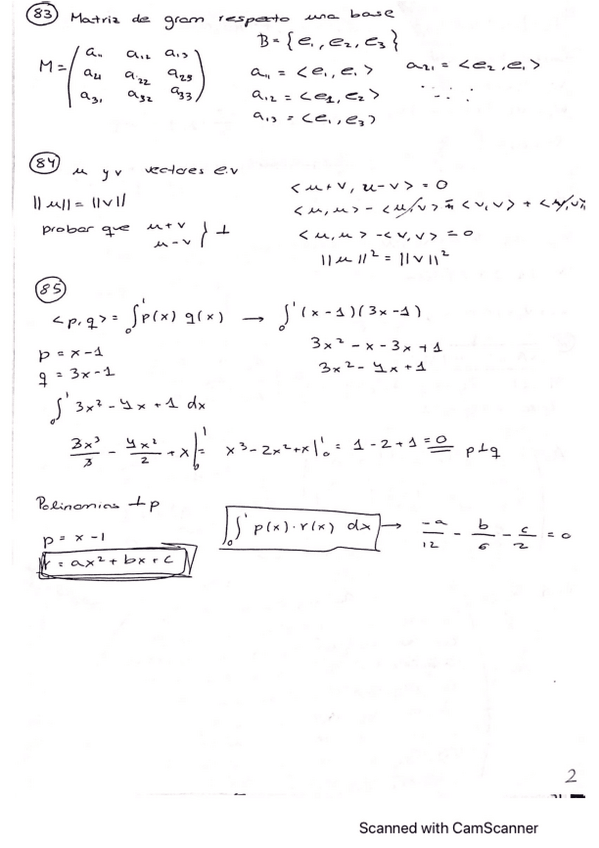 83 Matriz de gram respecto una base
B = {e₁, e₂, e₃}
M = (a₁₁ a₁₂ a₁₃
a₂₁ a₂₂ a₂₃
a₃₁ a₃₂ a₃₃)
a₁₁ = <e₁, e₁> a₂₁ = <e₂, e₁>
a₁₂ = <e₁, e₂>
a₁₃ = <e₁, e₃>
84 u y v vectores e.v
||u|| = ||v||
probar que u+v
u-v } ⊥
<u+v, u-v> = 0
<u, u> - <u/v> <v, v> + <u, v>
<u, u> - <v, v> = 0
||u||² = ||v||²
85
<p, q> = ∫₀¹ p(x) q(x) → ∫₀¹ (x-1)(3x-1)
p = x-1
q = 3x-1
3x² - x - 3x + 1
3x² - 4x + 1
∫₀¹ 3x² - 4x + 1 dx
3x³/3 - 4x²/2 + x |₀¹ = x³ - 2x² + x |₀¹ = 1 - 2 + 1 = 0 p⊥q
Polinomios ⊥ p
p = x - 1
r = ax² + bx + c
∫₀¹ p(x) · r(x) dx → -a/12 - b/6 - c/2 = 0
2
Scanned with CamScanner